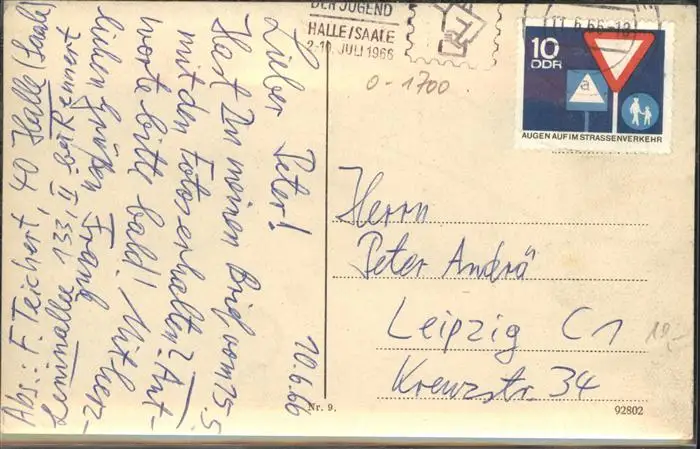 DER JUGEND
HALLE/SAALE
2-10. JULI 1966
11.6.66-18
10
DDR
a
AUGEN AUF IM STRASSENVERKEHR
0-1700
10.6.66
Lieber Peter!
Hast Du meinen Brief vom 15.5.
mit den Fotos erhalten? Ant-
worte bitte bald! Mit herz-
lichen Grüßen Frank
Abs.: F. Teichert, 40 Halle (Saale)
Leninallee 133, II bei Rennert
Herrn
Peter Andrä
Leipzig C1
Kreuzstr. 34
10,-
Nr. 9.
92802